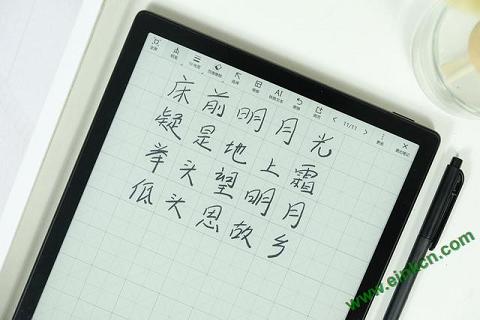 11/11
床前明月光
疑是地上霜
举头望明月
低头思故乡
www.einkcn.com